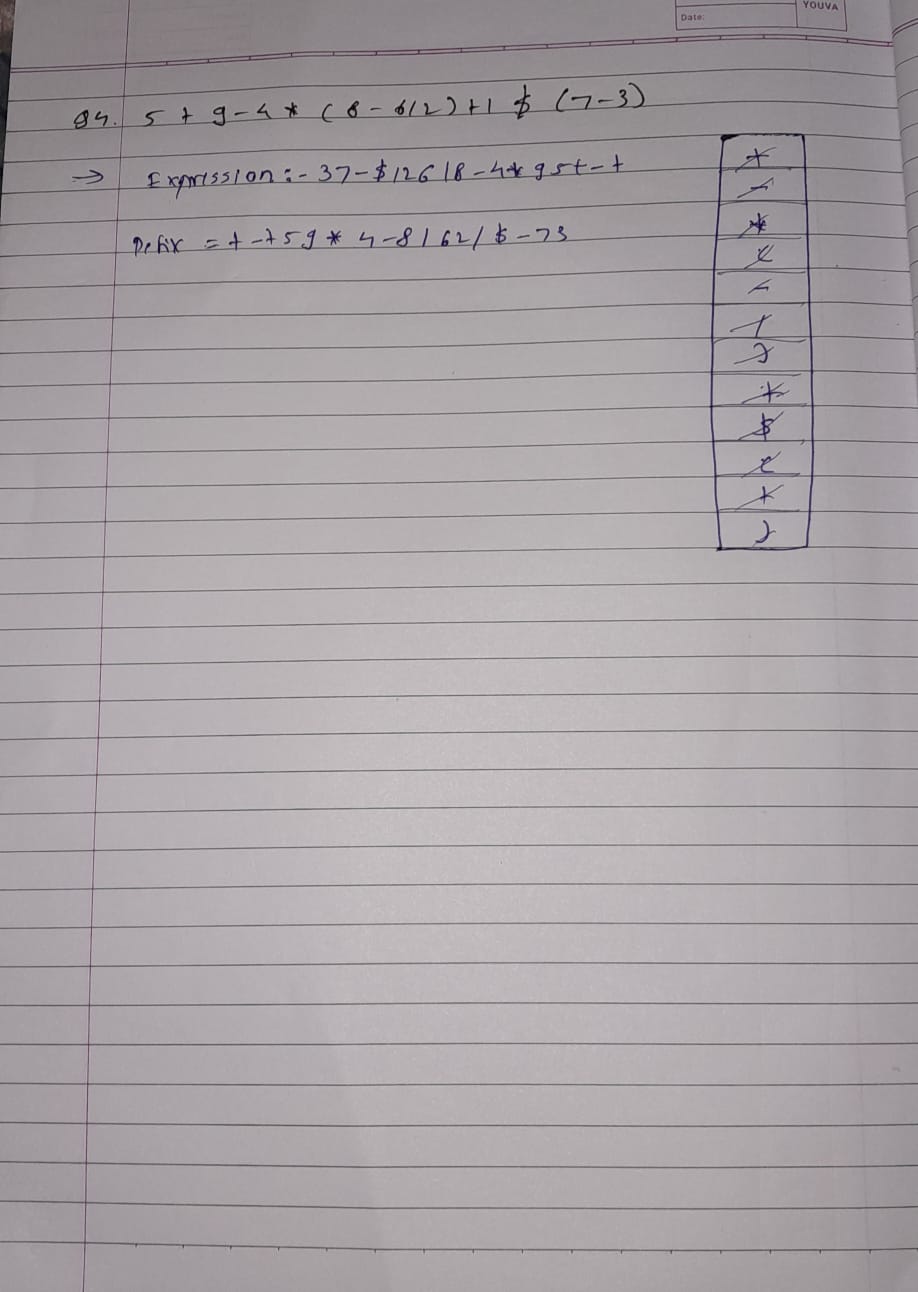 YOUVA
Date:
Q4. 5 + 9 - 4 * (8 - 6/2) + 1 $ (7-3)
→ Expression :- 37-$126/8-4*95+-+
Prefix = +-+59*4-8/62/$-73
+
-
*
(
-
/
)
+
$
(
-
)